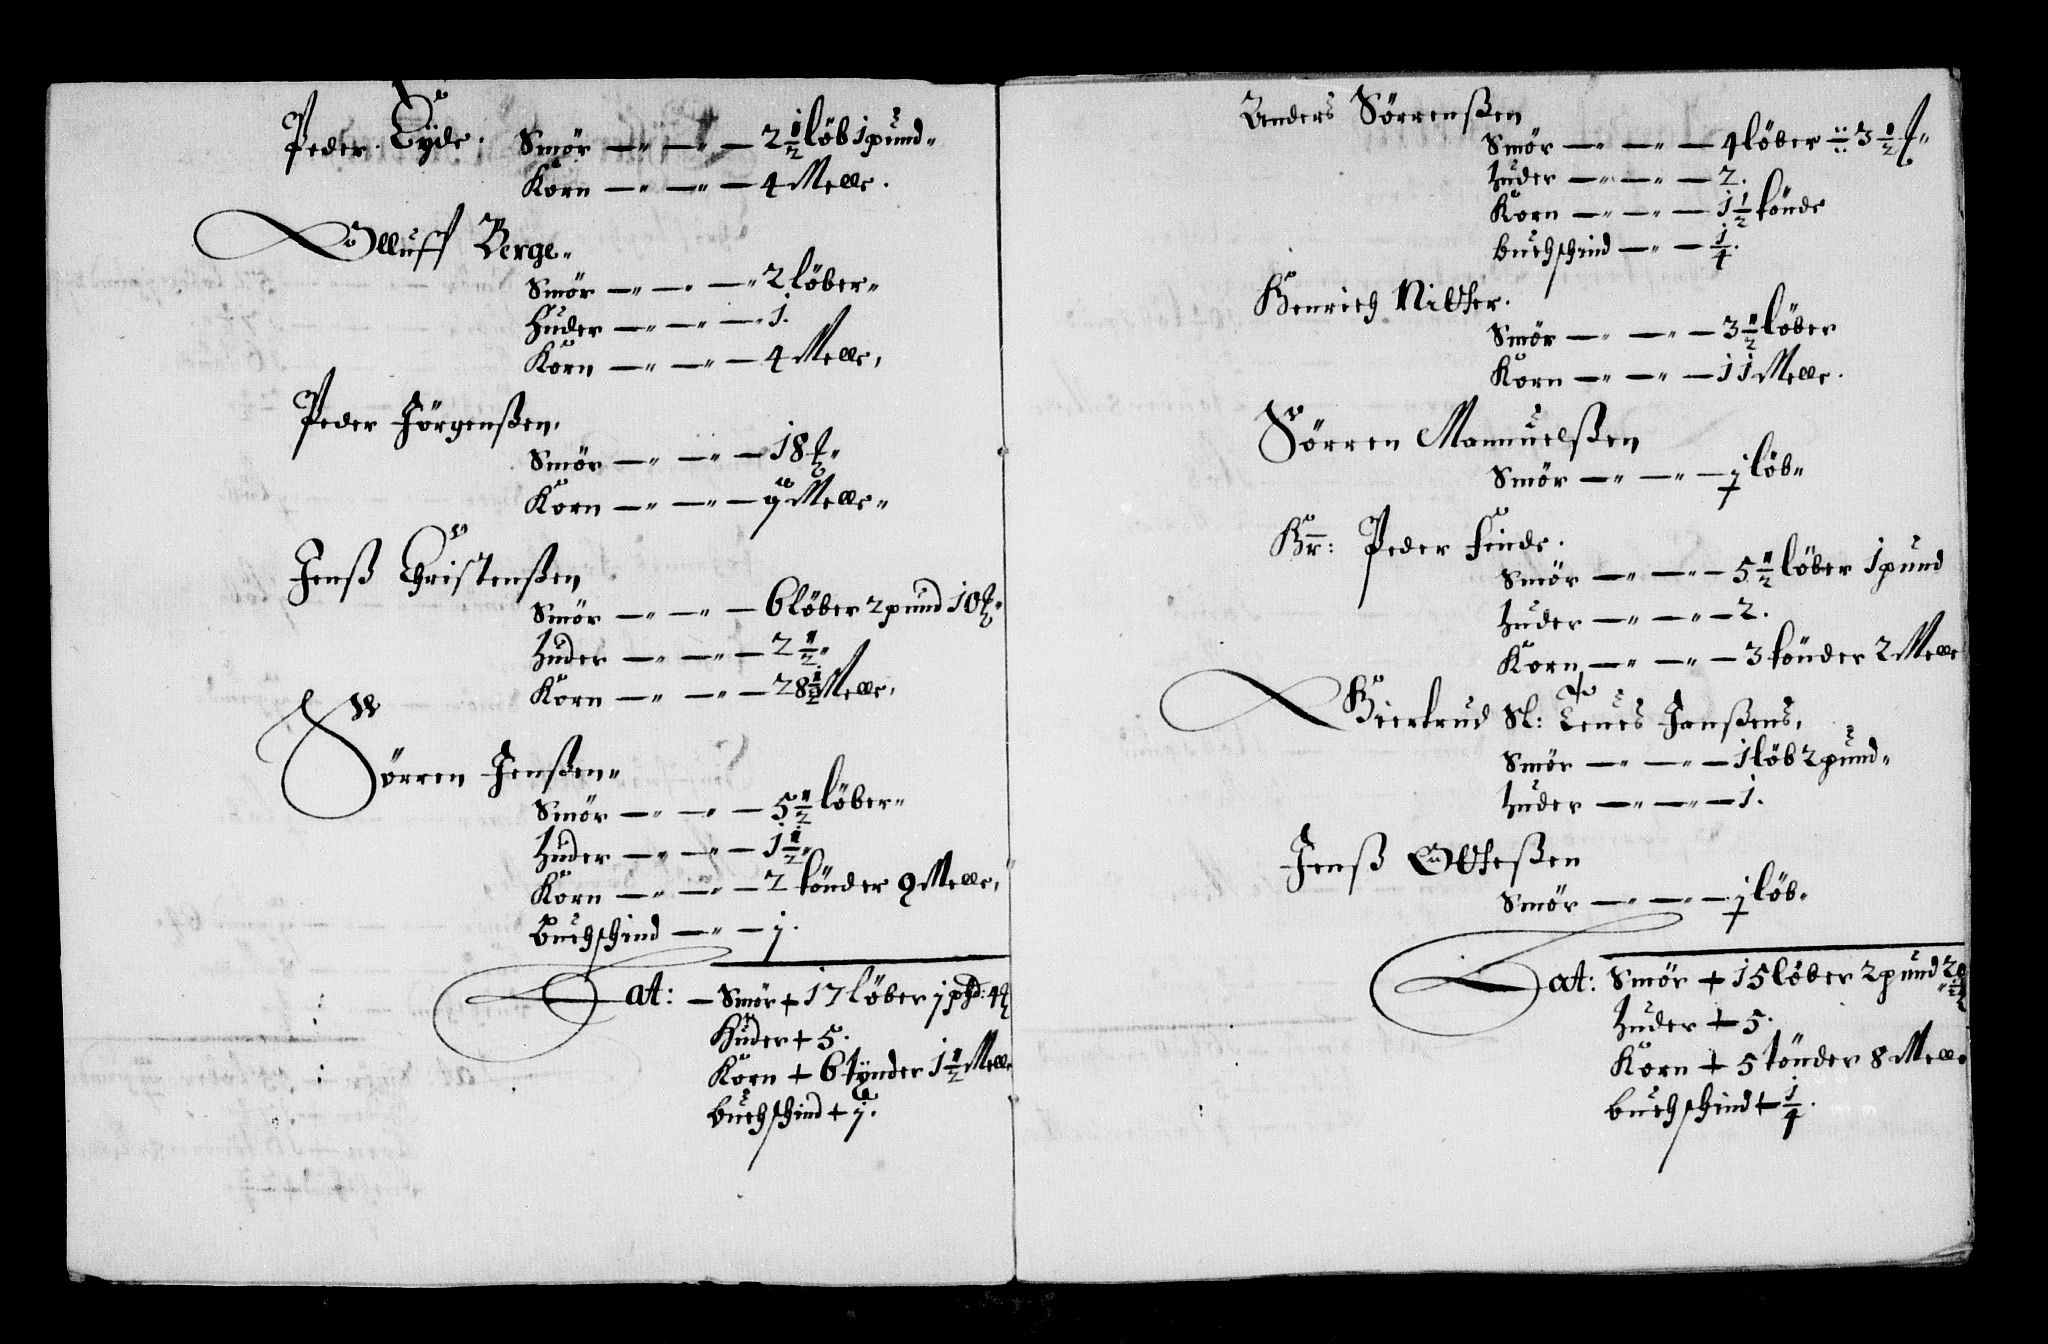 Peder Tyde. Smör — 2½ löb 1 pund
Korn — 4 Melle.
Olluff Berge
Smör — 2 löber
Huder — 1.
Korn — 4 Melle,
Peder Jörgenßen,
Smör — 18 ℔
Korn — 9 Melle
Jenß Christenßen
Smör — 6 löber 2 pund 10 ℔
Huder — 2½
Korn — 28½ Melle,
Sörren Jenßen
Smör — 5½ löber
Huder — 1½
Korn — 2 tönder 9 Melle,
Buchschind — j.
Lat: — Smör + 17 löber j pd: 4 ℔
Huder + 5.
Korn + 6 tynder 1½ Melle
Buchschind + j.
Anders Sörrenßen
Smör — 4 löber ÷ 3½ ℔
Huder — 2.
Korn — 1½ tönde
Buchschind — ¼.
Henrich
Smör — 3½ löber
Korn — 11 Melle.
Sörren Mannuelßen
Smör — j löb
Hr: Peder Finde.
Smör — 5½ löber 1 pund
Huder — 2.
Korn — 3 tönder 2 Melle
Giertrud Sl: Teues Janßens,
Smör — 1 löb 2 pund
Huder — 1.
Jenß Otteßen
Smör — j löb
Lat: Smör + 15 löber 2 pund
Huder + 5.
Korn + 5 tönder 8 Melle
Buchschind + ¼.